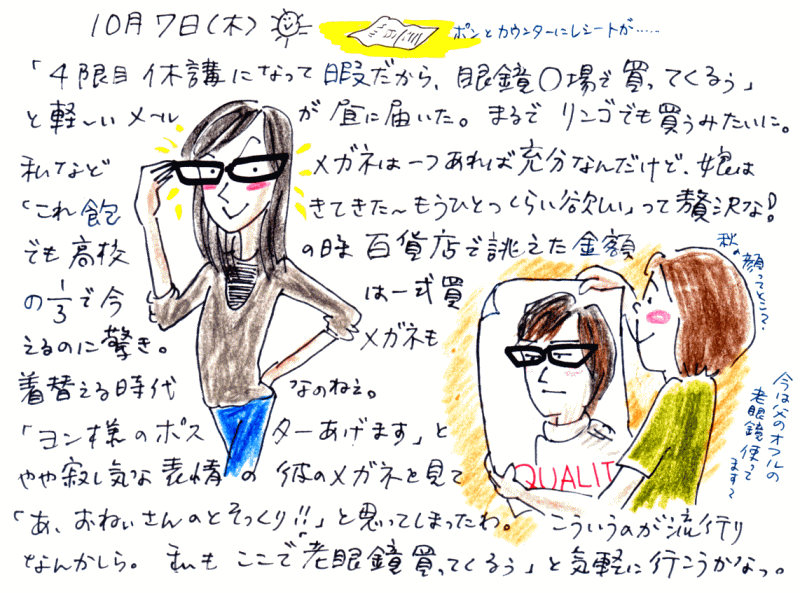 10月7日(木)
ポンとカウンターにレシートが……
「4限目休講になって暇だから、眼鏡〇場で買ってくるぅ」
と軽〜いメール が昼に届いた。まるでリンゴでも買うみたいに。
私など メガネは一つあれば充分なんだけど、娘は
「これ飽 きてきた〜もうひとつくらい欲しい」って贅沢な!
でも高校 の時百貨店で誂えた金額
の1/3で今 は一式買
えるのに驚き。 メガネも
着替える時代 なのねぇ。
「ヨン様のポス ターあげます」と
やや寂し気な表情の 彼のメガネを見て
「あ、おねぃさんのとそっくり!!」と思ってしまったわ。 こういうのが流行り
なんかしら。 私もここで「老眼鏡買ってくるぅ」と気軽に行こうかなっ。
秋の顔ってとこで
今は父のオフルの
老眼鏡使って
ますぅ
QUALIT